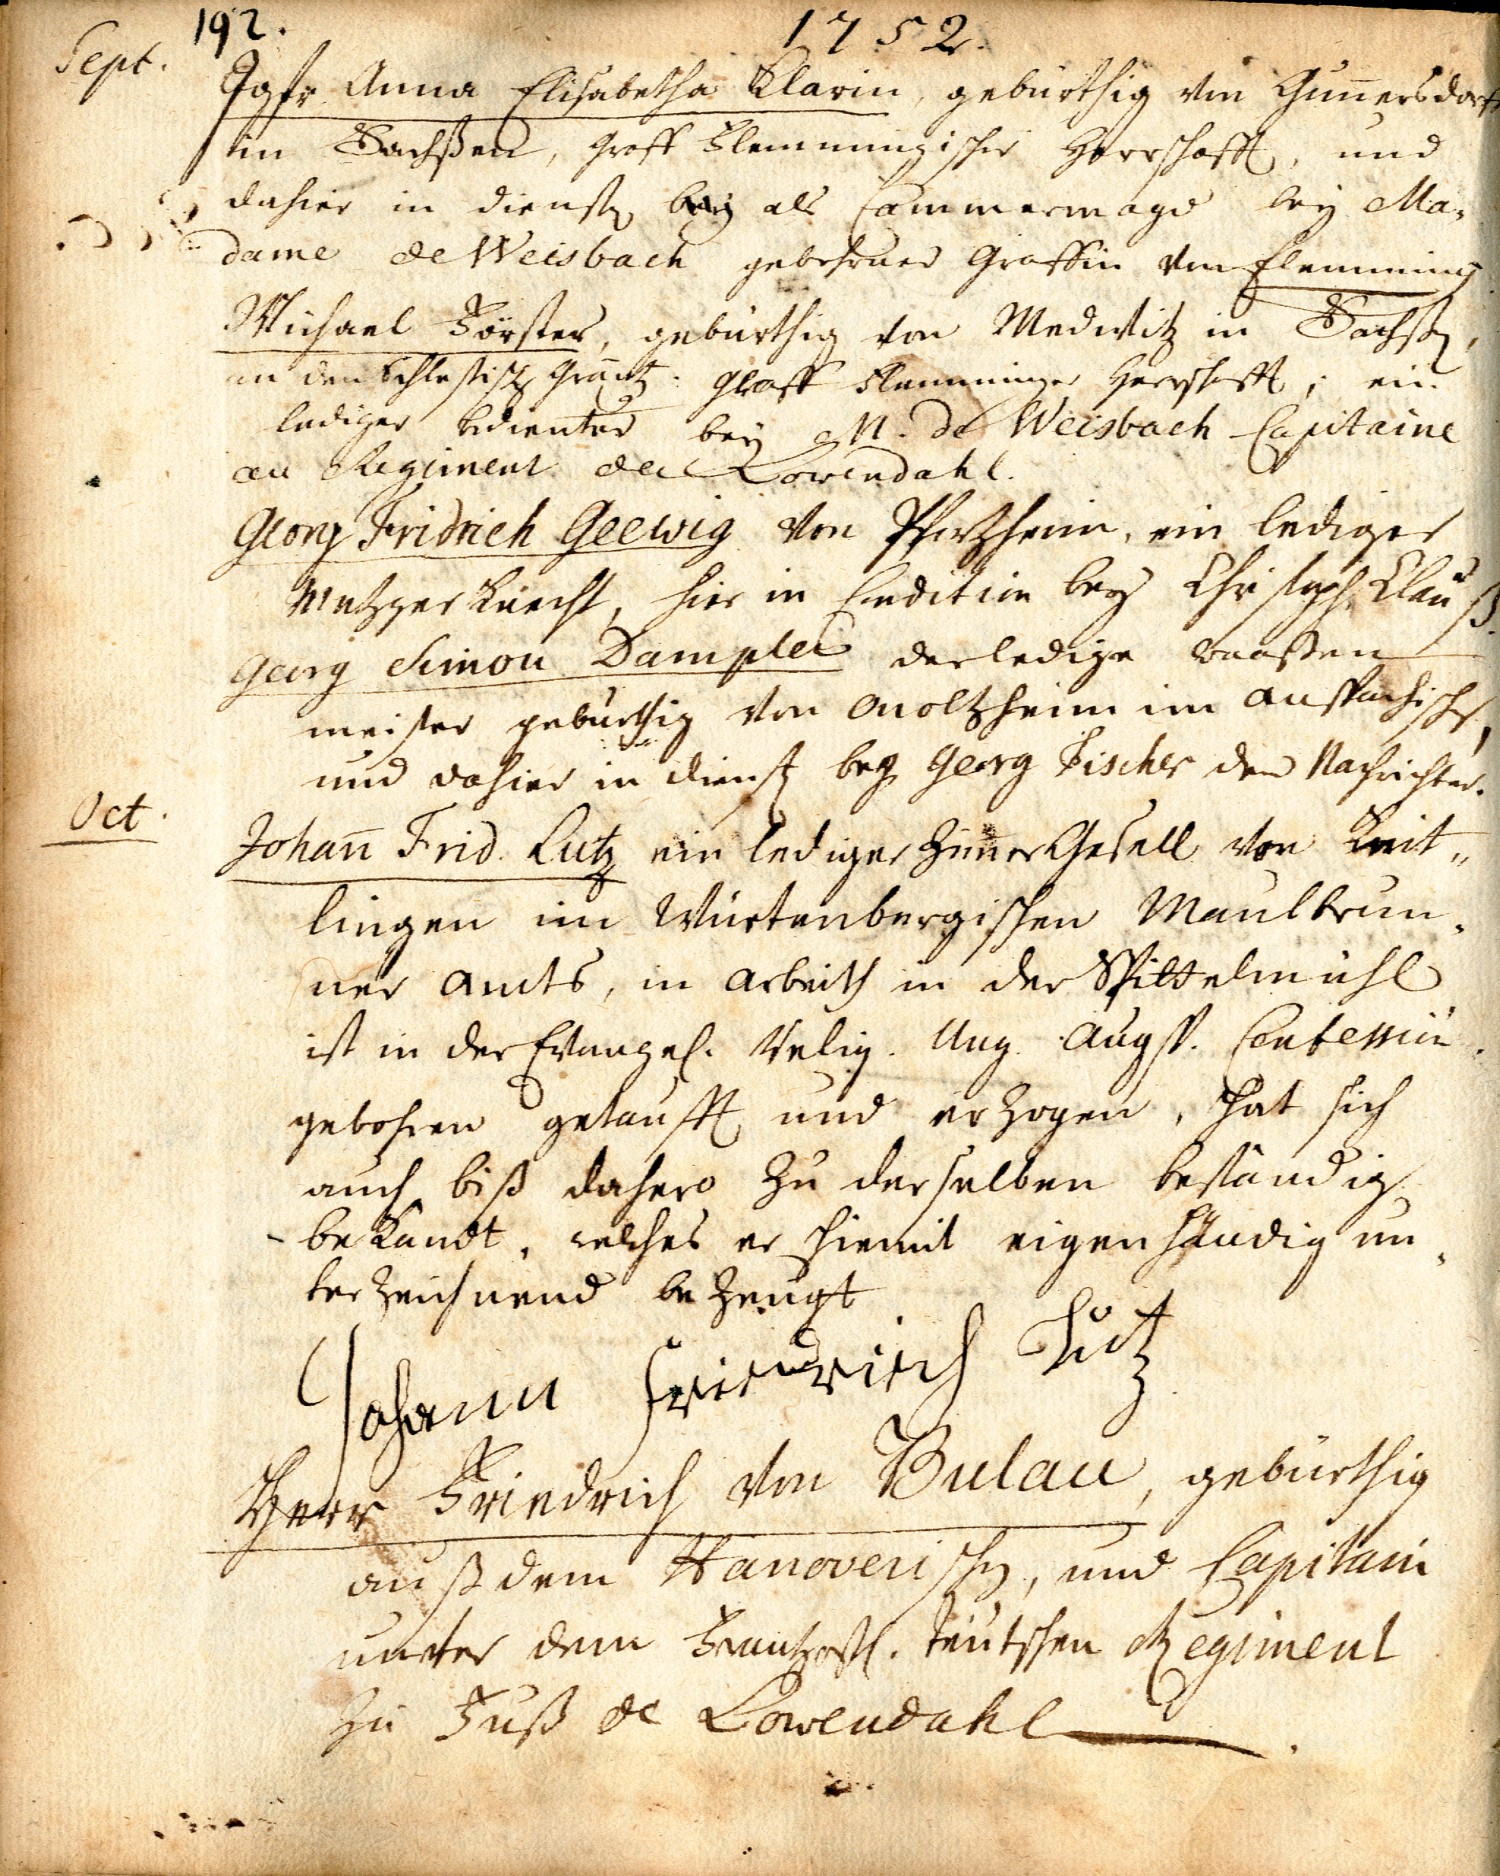 192. 1752.
Sept.
Jgfr Anna Elisabetha Klarin, gebürthig von Gunnersdorff
in Sachßen, Graff Flemmingischer Herrschafft, und
dahier in Dienst als Cammermagd bey Ma-
dame de Weisbach gebohrner Gräffin von Flemming
Michael Förster, gebürthig von Medwitz in Sachß,
an den Schlesisch Gräntz. Graff Flemminger Herrschafft, ein
lediger bedienter bey M. de Weisbach Capitaine
au Regiment de Lowendahl.
Georg Fridrich Geewig von Pfortzheim, ein lediger
Metzger Knecht, hier in Condition bey Christoph Clauß.
Georg Simon Dampler der ledige Waaßen
meister gebürthig von Onoltzheim im Anspachischen,
und dahier in Dienst bey Georg Fischer dem Nachrichter.
Oct.
Johañ Frid. Lutz ein lediger Zimer Gesell von Knit-
lingen im Würtenbergischen Maulbrun-
ner Amts, in Arbeith in der Spittelmühl
ist in der Evangel. Relig. Ung. Augsp. Confession
gebohren getaufft und erzogen, hat sich
auch biß dahero zu derselben beständig
bekandt, welches er hiemit eigenhändig un-
terzeichnend bezeugt
Johann Friedriech Lutz
Herr Friedrich von Bulau, gebürthig
auß dem Hanoverischen, und Capitain
unter dem Frantzösl. teutschen Regiment
zu Fuß de Lowendahl.